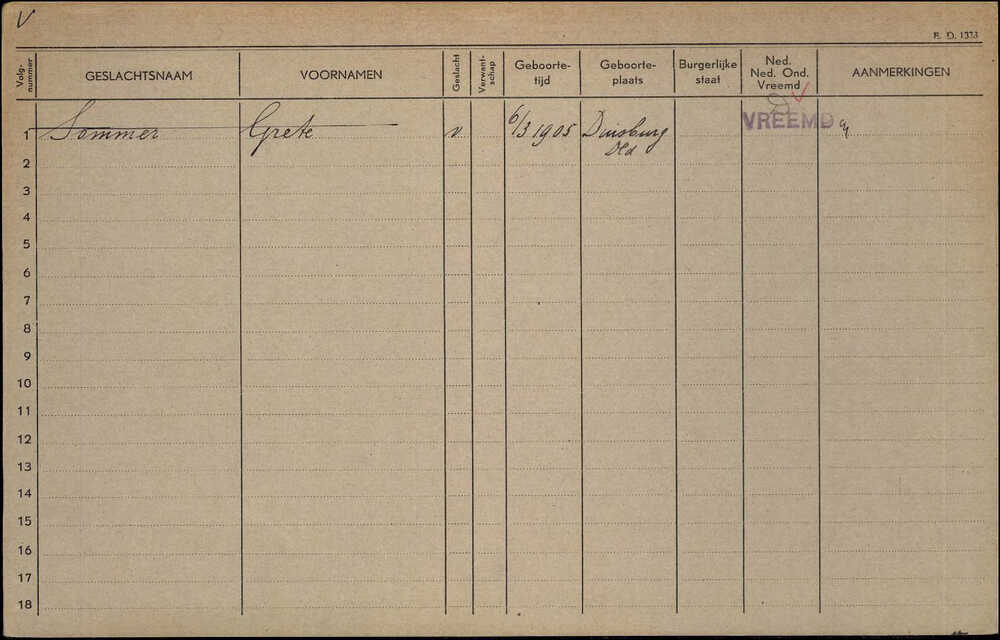 V
E. D. 1373
Volg-
nummer
GESLACHTSNAAM
VOORNAMEN
Geslacht
Verwant-
schap
Geboorte-
tijd
Geboorte-
plaats
Burgerlijke
staat
Ned.
Ned. Ond.
Vreemd
AANMERKINGEN
1 Sommer Grete v 6/3 1905 Duisburg VREEMD
Dld
2
3
4
5
6
7
8
9
10
11
12
13
14
15
16
17
18